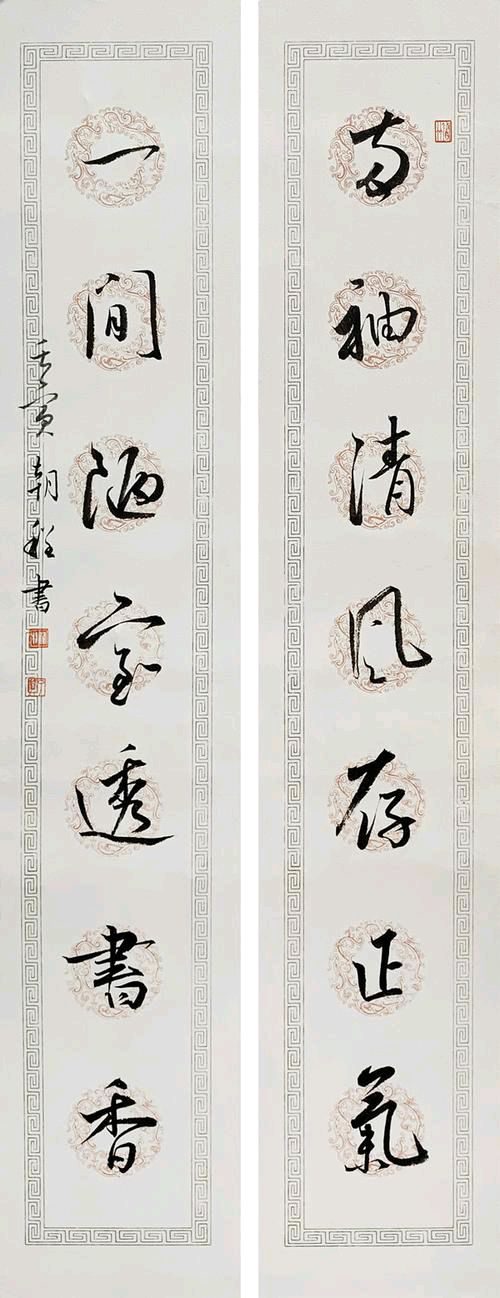 两袖清风存正氣
一间陋室透書香
壬寅朝程書